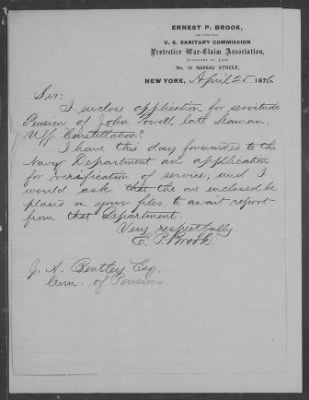 ERNEST P. BROOK,
U. S. SANITARY COMMISSION
Protective War-Claim Association,
ATTORNEY AT LAW,
No. NASSAU STREET,
NEW YORK, April 25 1876
Sir:
I enclose application for servitude
Pension of John Powell, late Seaman,
Uff "Constellation".
I have this day forwarded to the
Navy Department an application
for verification of service, and I
would ask that the one enclosed be
placed on your files to await report
from that Department.
Very respectfully
E. P. Brook.
J. A. Bentley Esq.
Com. of Pensions